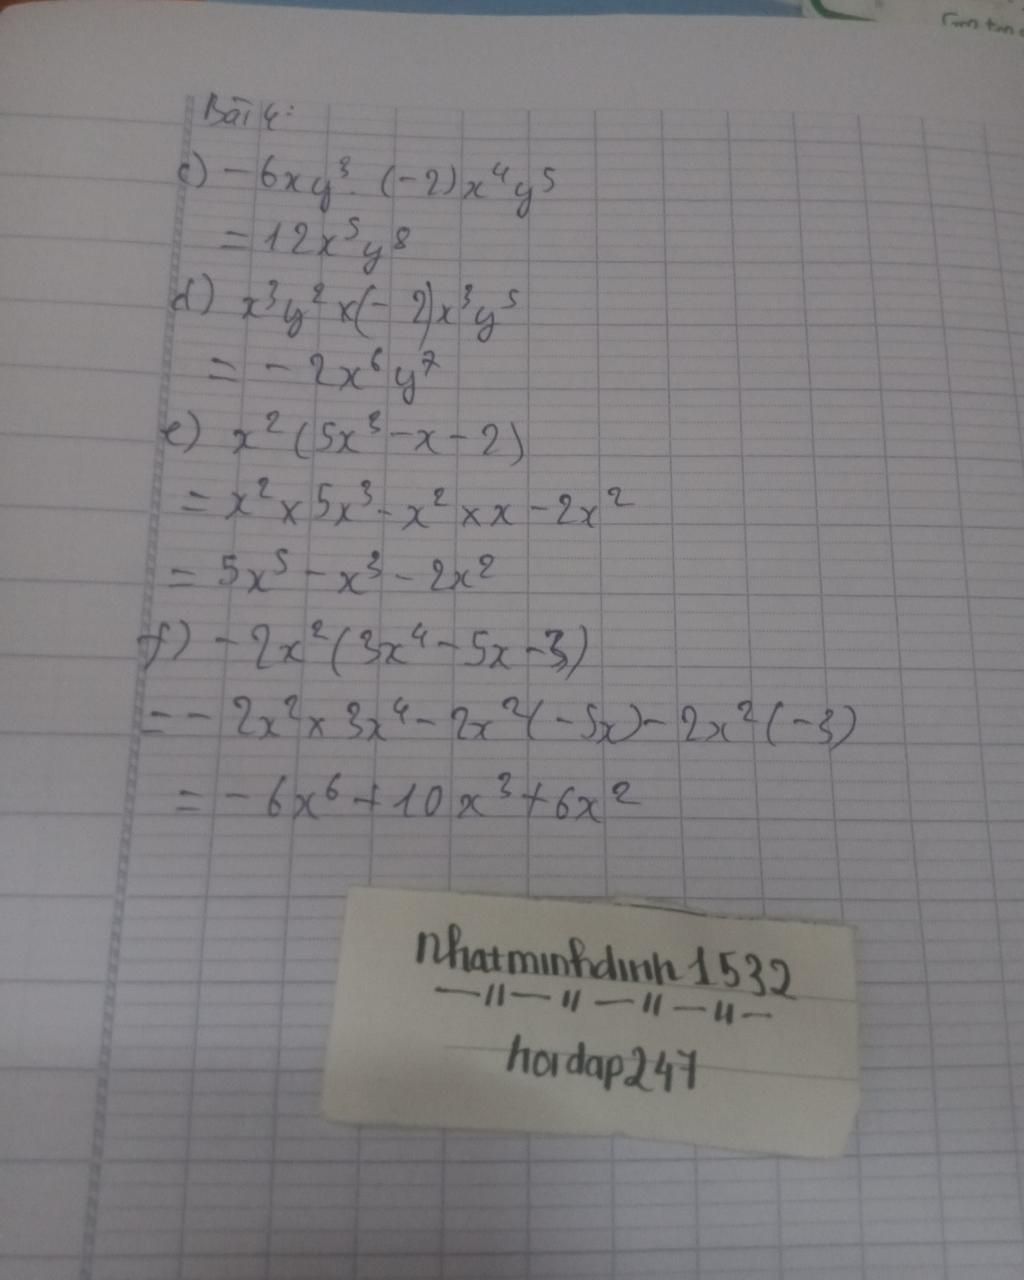 Bài 4:
c) -6xy³ . (-2)x⁴y⁵
= 12x⁵y⁸
d) x³y² x(-2)x³y⁵
= -2x⁶y⁷
e) x²(5x³-x-2)
= x² x 5x³ - x² x x - 2x²
= 5x⁵ - x³ - 2x²
f) -2x²(3x⁴-5x-3)
= -2x² x 3x⁴ - 2x²(-5x) - 2x²(-3)
= -6x⁶ + 10x³ + 6x²
nhatminhdinh1532
hoidap247